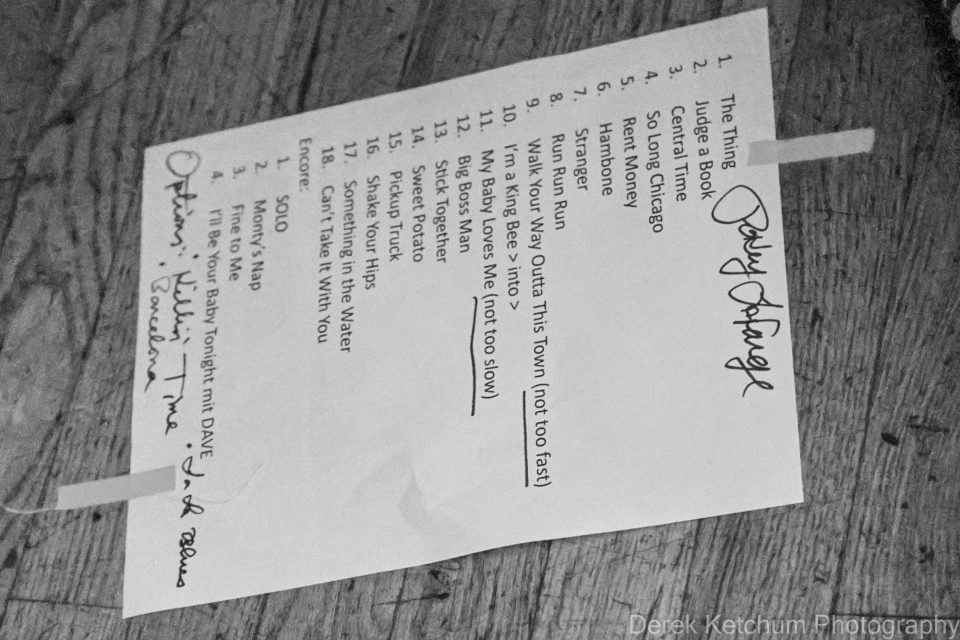 Pokey LaFarge
1. The Thing
2. Judge a Book
3. Central Time
4. So Long Chicago
5. Rent Money
6. Hambone
7. Stranger
8. Run Run Run
9. Walk Your Way Outta This Town (not too fast)
10. I'm a King Bee > into >
11. My Baby Loves Me (not too slow)
12. Big Boss Man
13. Stick Together
14. Sweet Potato
15. Pickup Truck
16. Shake Your Hips
17. Something in the Water
18. Can't Take It With You
Encore:
1. SOLO
2. Monty's Nap
3. Fine to Me
4. I'll Be Your Baby Tonight mit DAVE
Options: Killin' Time
• Barcelona
Derek Ketchum Photography